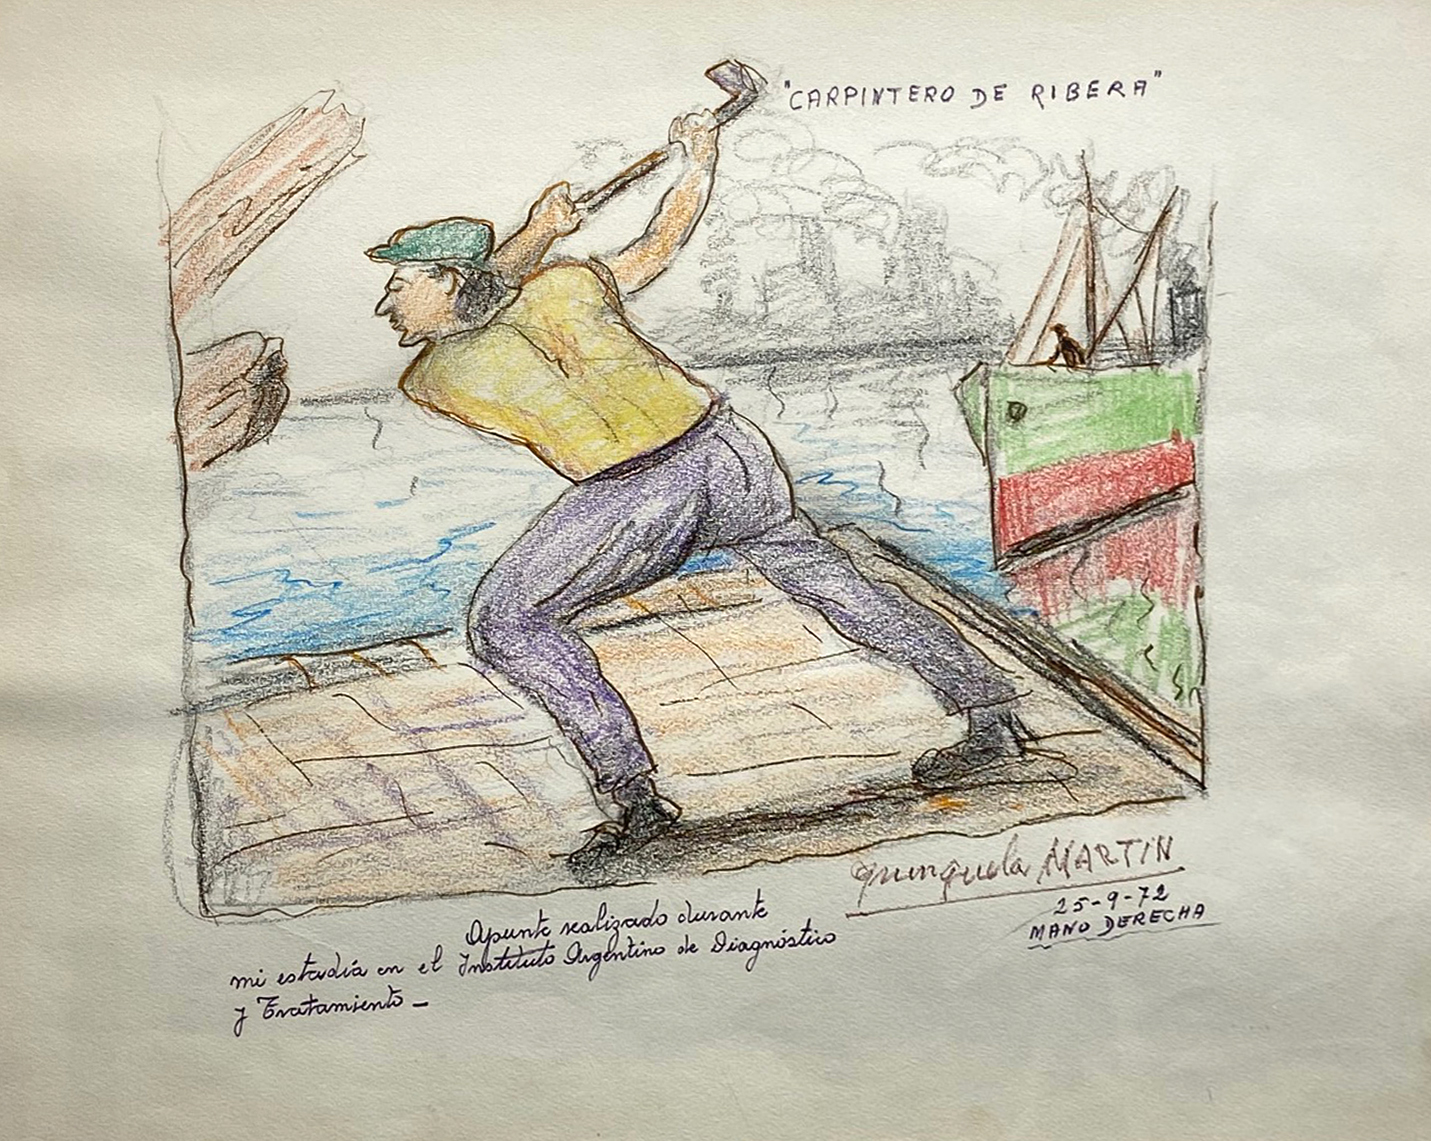 "CARPINTERO DE RIBERA"
Quinquela MARTIN
25-9-72
MANO DERECHA
Apunte realizado durante
mi estadía en el Instituto Argentino de Diagnóstico
y Tratamiento -